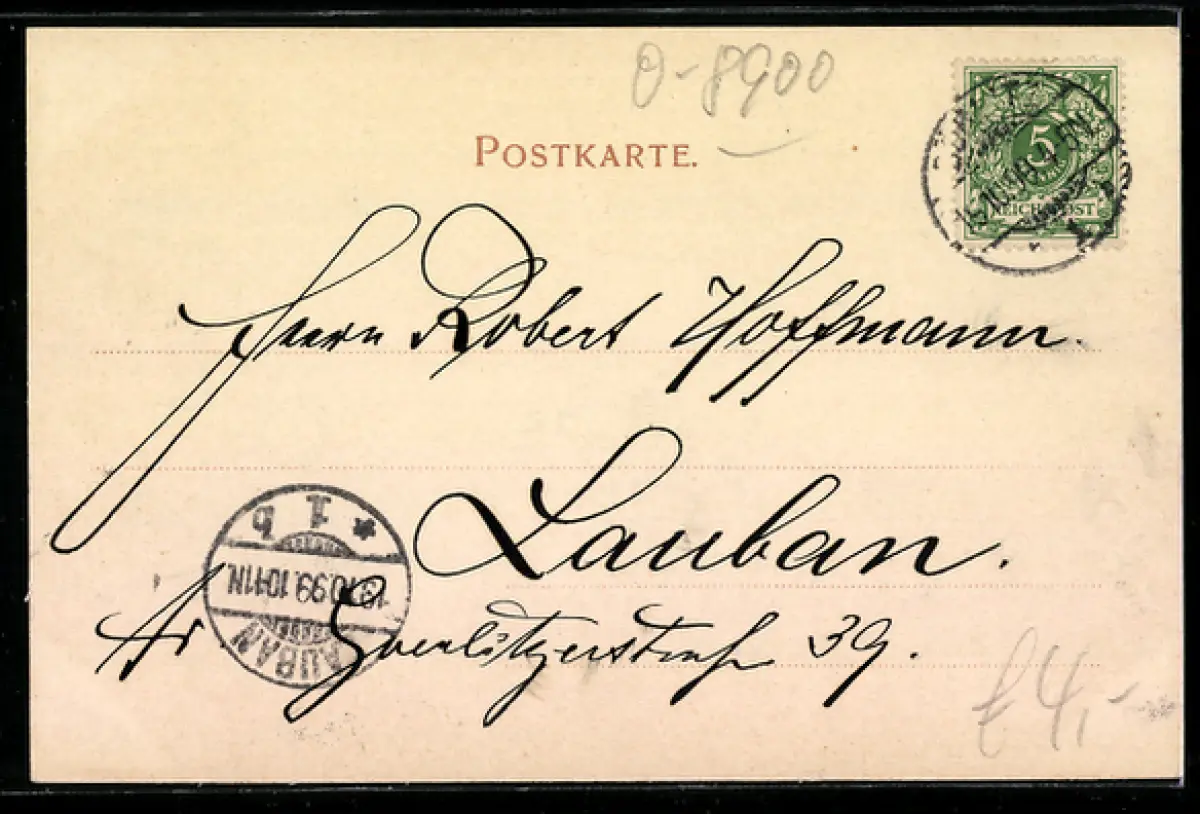 O-8900
POSTKARTE.
5
REICHSPOST
Herrn Robert Hoffmann.
Lauban.
Goerlitzerstraße 39.
* 1 b
.10.99.10-11N.
LAUBAN
£4,-